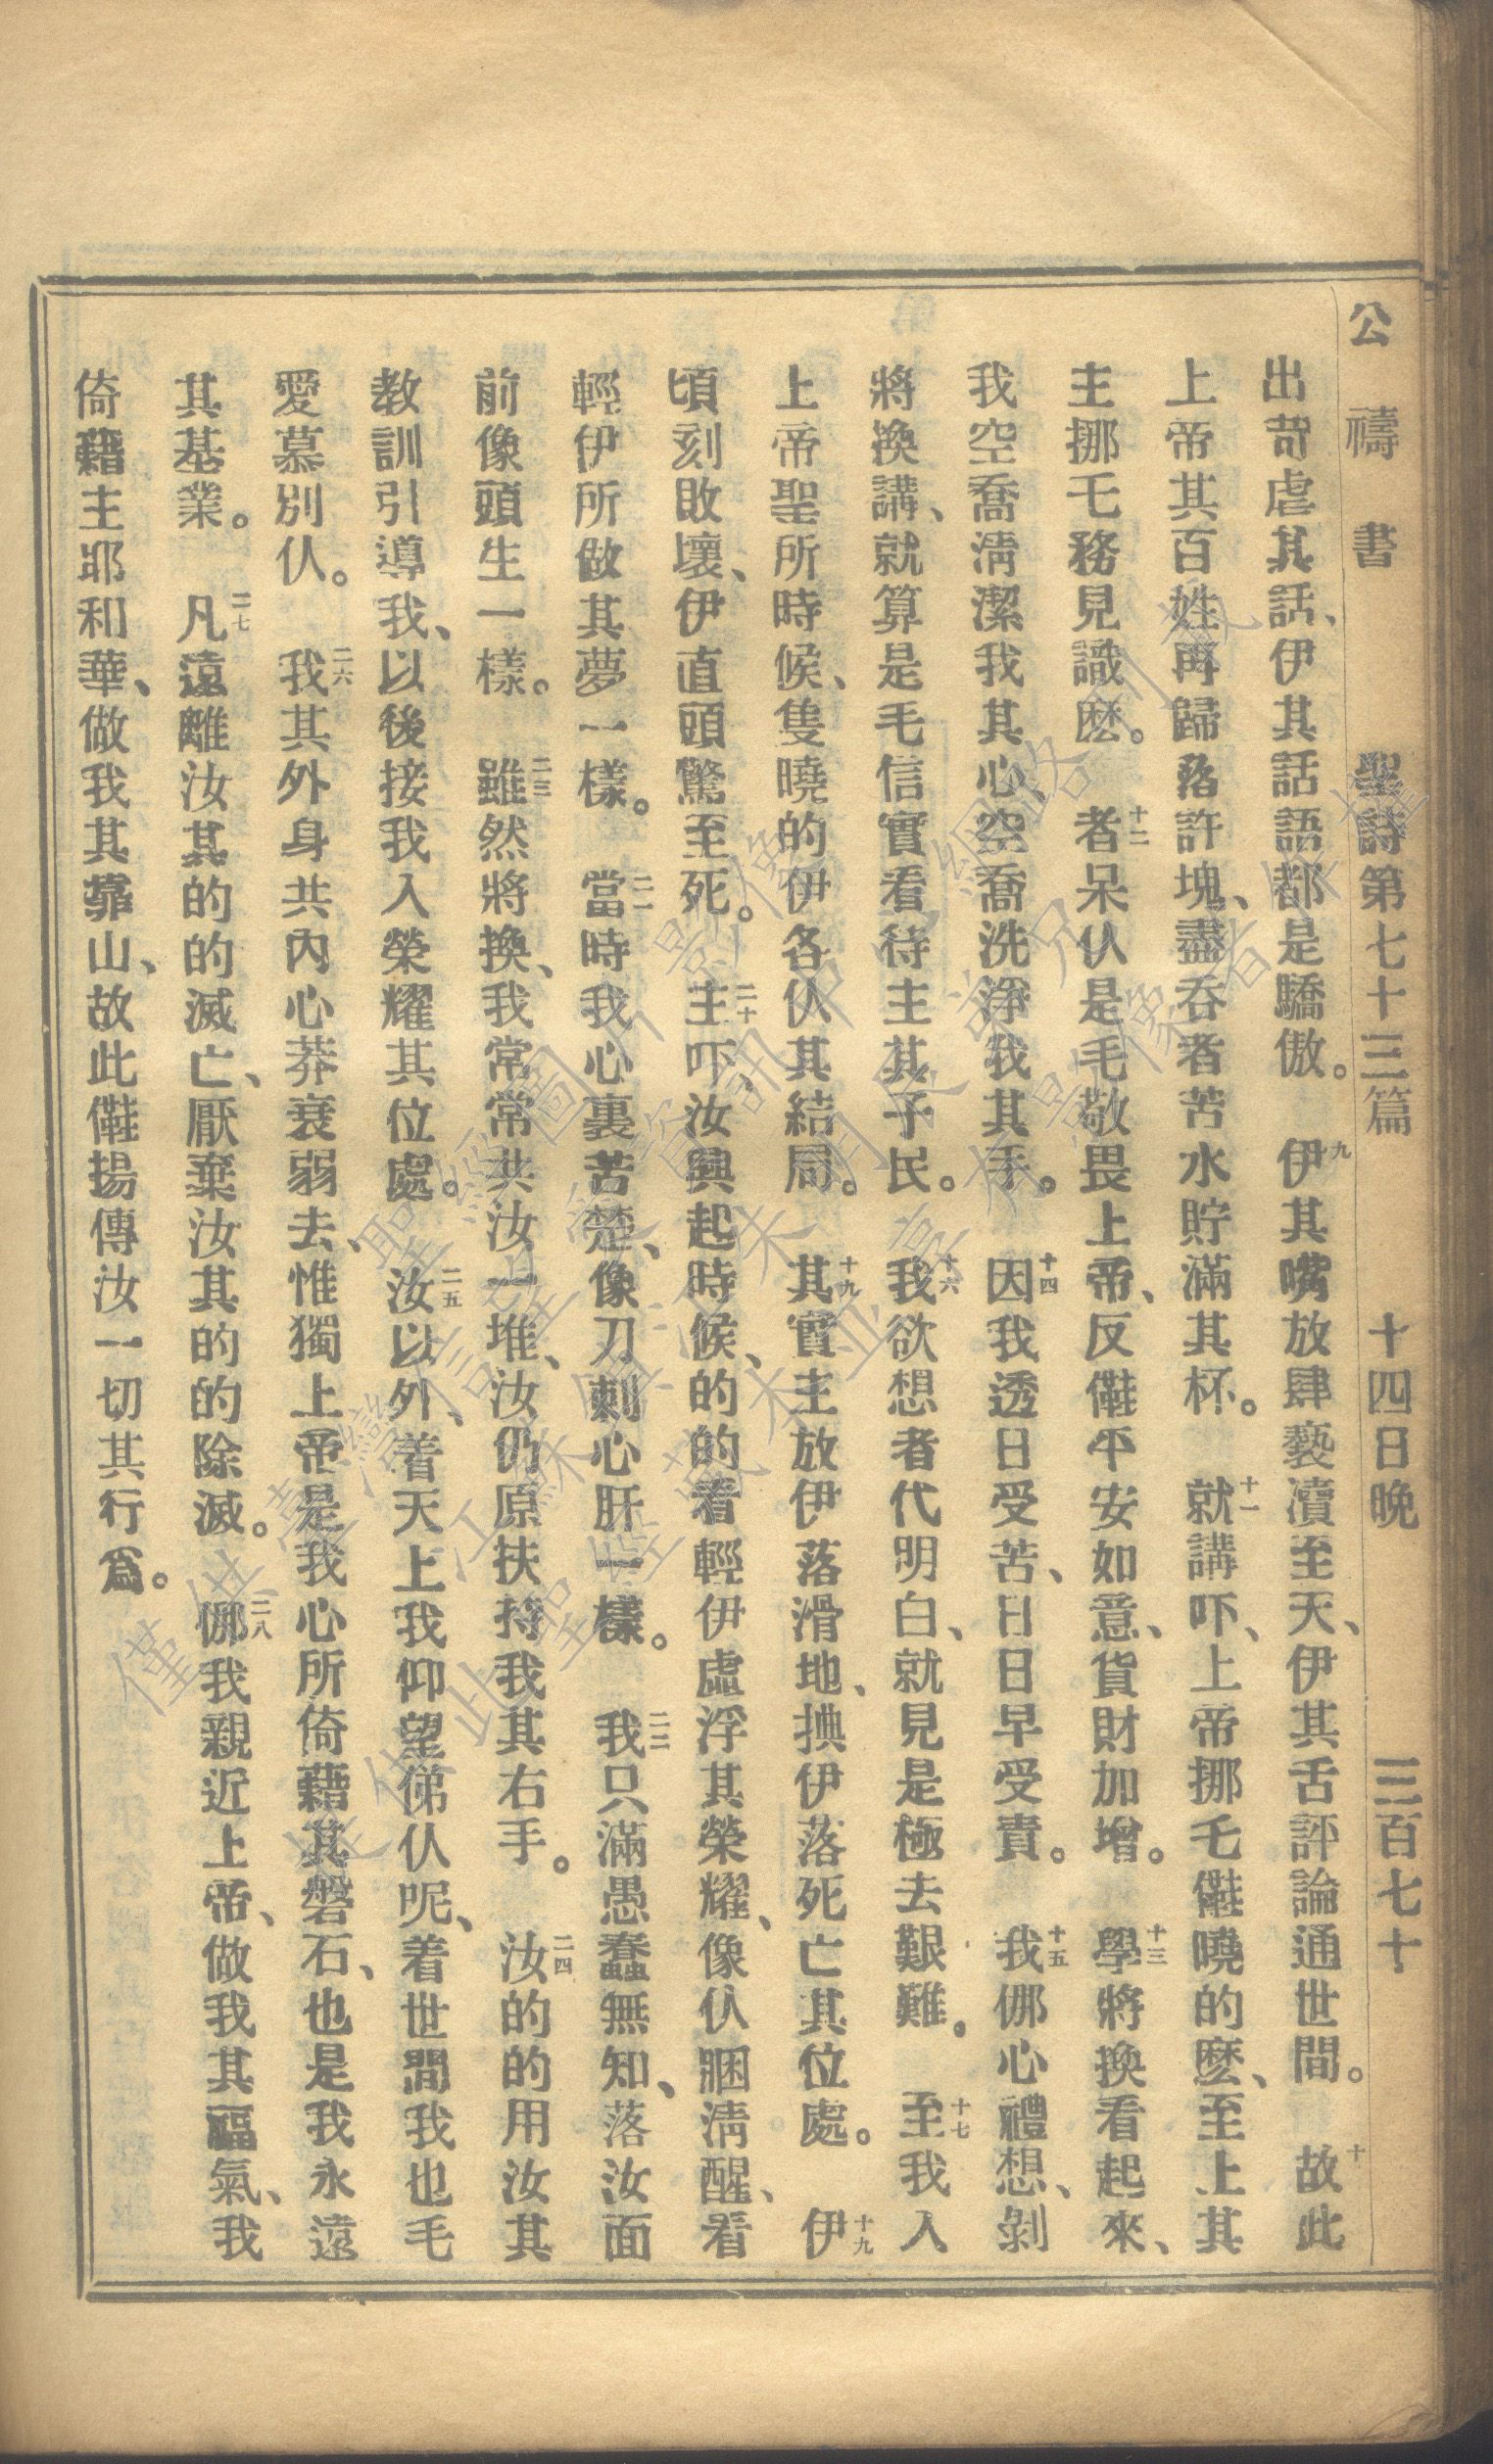 公禱書 聖詩第七十三篇 十四日晚 三百七十
出苛虐其話、伊其話語都是驕傲。九伊其嘴放肆褻瀆至天、伊其舌評論通世間。十故此
上帝其百姓再歸落許塊、盡吞者苦水貯滿其杯。十一就講吓、上帝挪乇𣍐曉的麽、至上其
主挪乇務見識麽。十二者呆仈是毛敬畏上帝、反𣍐平安如意、貨財加增。十三學將換看起來、
我空喬淸潔我其心、空喬洗淨我其手。十四因我透日受苦、日日早受責。十五我㑚心禮想、剝
將換講、就算是毛信實看待主其子民。十六我欲想者代明白、就見是極去艱難。十七至我入
上帝聖所時候、隻曉的伊各仈其結局。十九其實主放伊落滑地、㧣伊落死亡其位處。十九伊
頃刻敗壞、伊直頭驚至死。二十主吓、汝興起時候、的的着輕伊虛浮其榮耀、像仈睏淸醒、看
輕伊所做其夢一樣。二一當時我心裏苦楚、像刀刺心肝一樣。二二我只滿愚蠢無知、落汝面
前像頭生一樣。二三雖然將換、我常常共汝一堆、汝仍原扶持我其右手。二四汝的的用汝其
教訓引導我、以後接我入榮耀其位處。二五汝以外、着天上我仰望俤仈呢、着世間我也毛
愛慕別仈。二六我其外身共內心莽衰弱去、惟獨上帝是我心所倚藉其磐石、也是我永遠
其基業。二七凡遠離汝其的的滅亡、厭棄汝其的的除滅。二八㑚我親近上帝、做我其福氣、我
倚藉主耶和華、做我其靠山、故此𣍐揚傳汝一切其行爲。